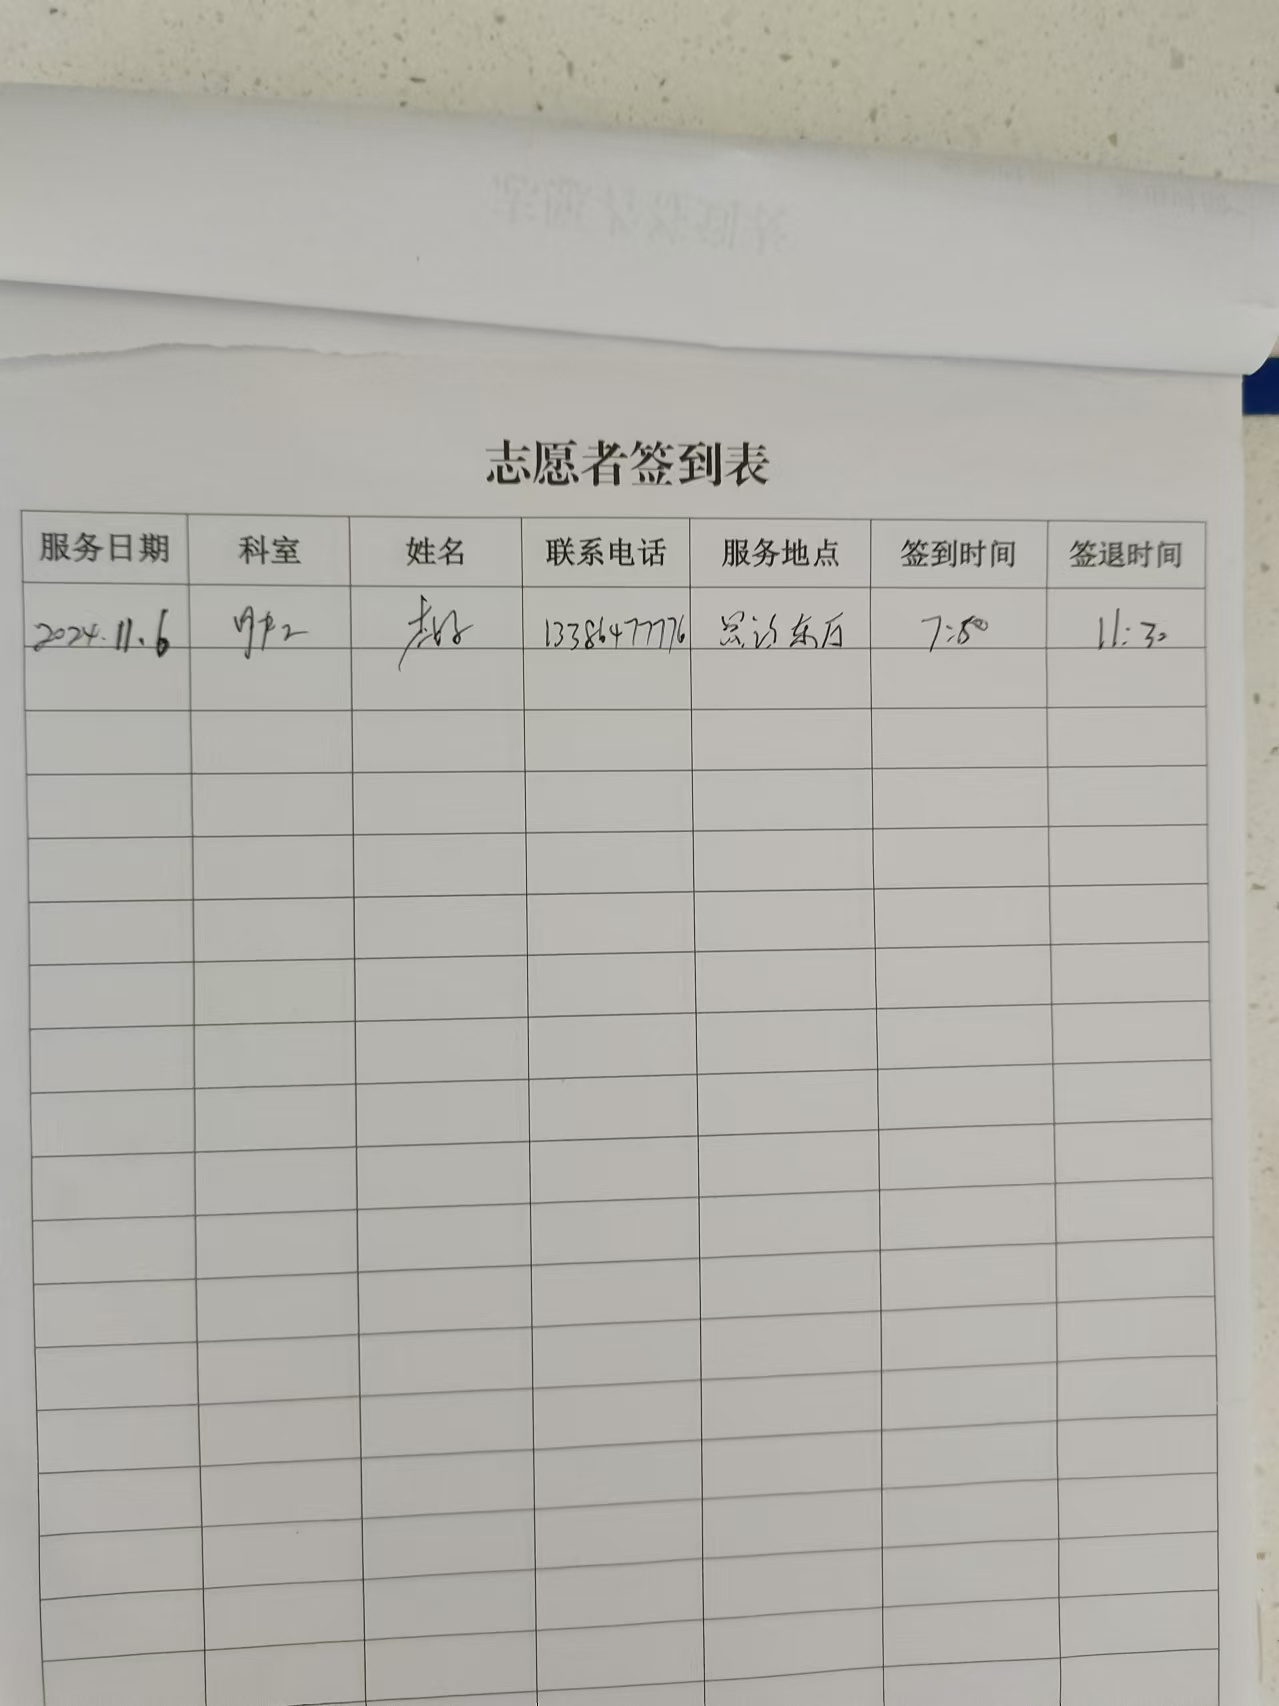 志愿者签到表
服务日期 科室 姓名 联系电话 服务地点 签到时间 签退时间
2024.11.6 13386477776 东厅 7:50 11:30